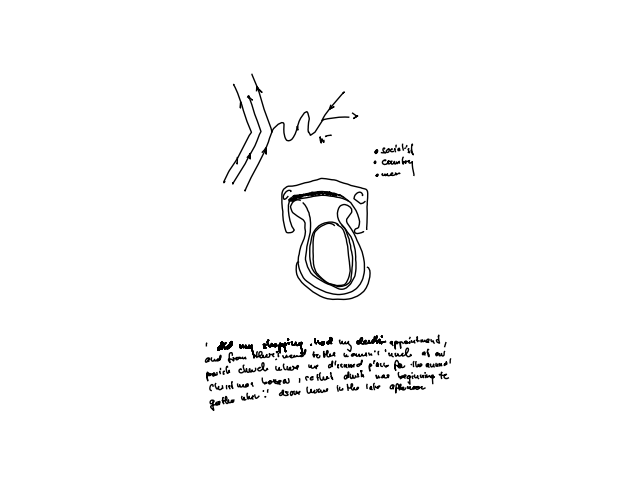 W⁻
• socialist
• country
• men
I did my shopping, had my dentist appointment,
and from there I went to the women's lunch of our
parish church where we discussed plans for the annual
Christmas bazaar, so that dusk was beginning to
gather when I drove home in the late afternoon